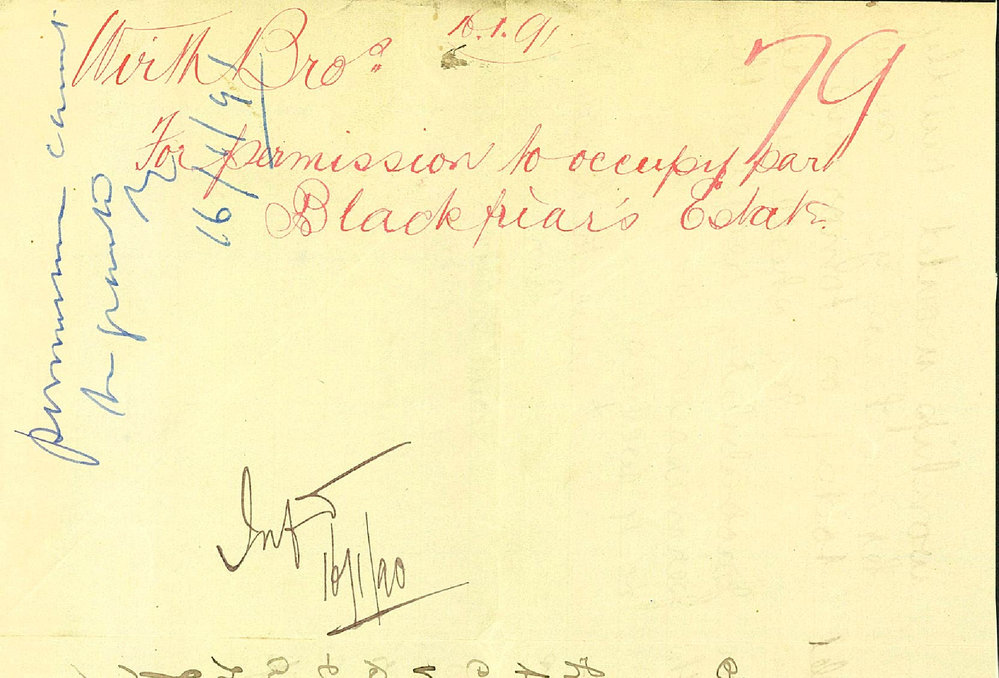 Wirth Bros. 16.1.91
79
For permission to occupy part
Blackfriar's Estate.
permission cannot
be granted
16/1/91
Infd
16/1/90